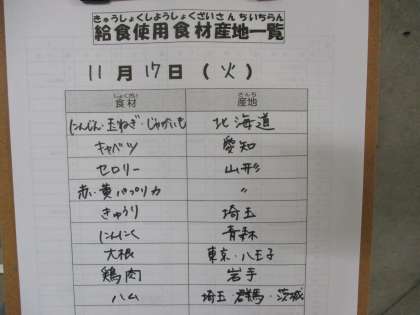 きゅうしょくしようしょくざいさんちいちらん
給食使用食材産地一覧
11月17日（火）
しょくざい さんち
食材 産地
にんじん・玉ねぎ・じゃがいも 北海道
キャベツ 愛知
セロリー 山形
赤・黄パプリカ 〃
きゅうり 埼玉
にんにく 青森
大根 東京・八王子
鶏肉 岩手
ハム 埼玉 群馬・茨城